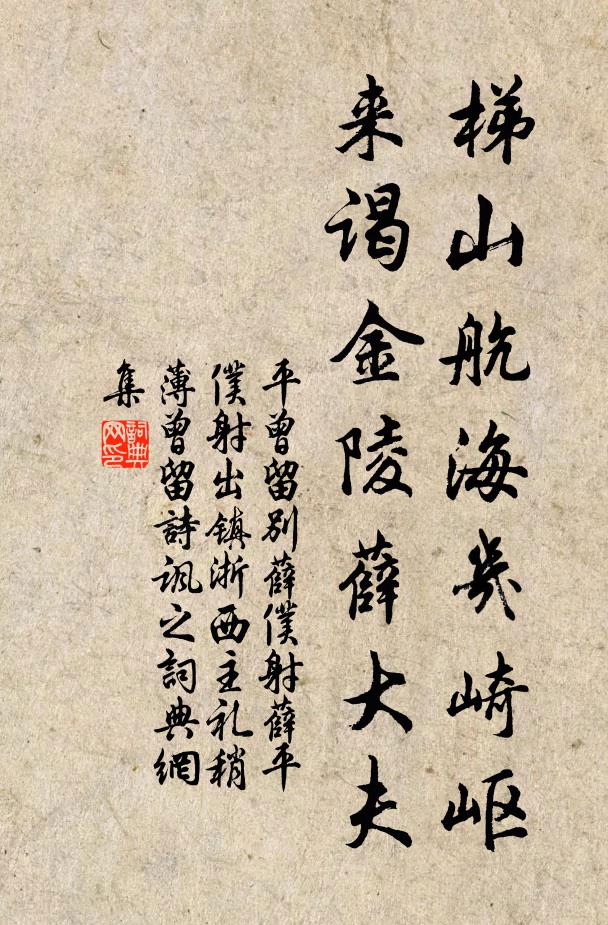 梯山航海幾崎岖
来谒金陵薛大夫
平曾留别薛僕射薛平
僕射出镇浙西主礼稍
薄曾留詩讽之詞典網
集
詞典网印